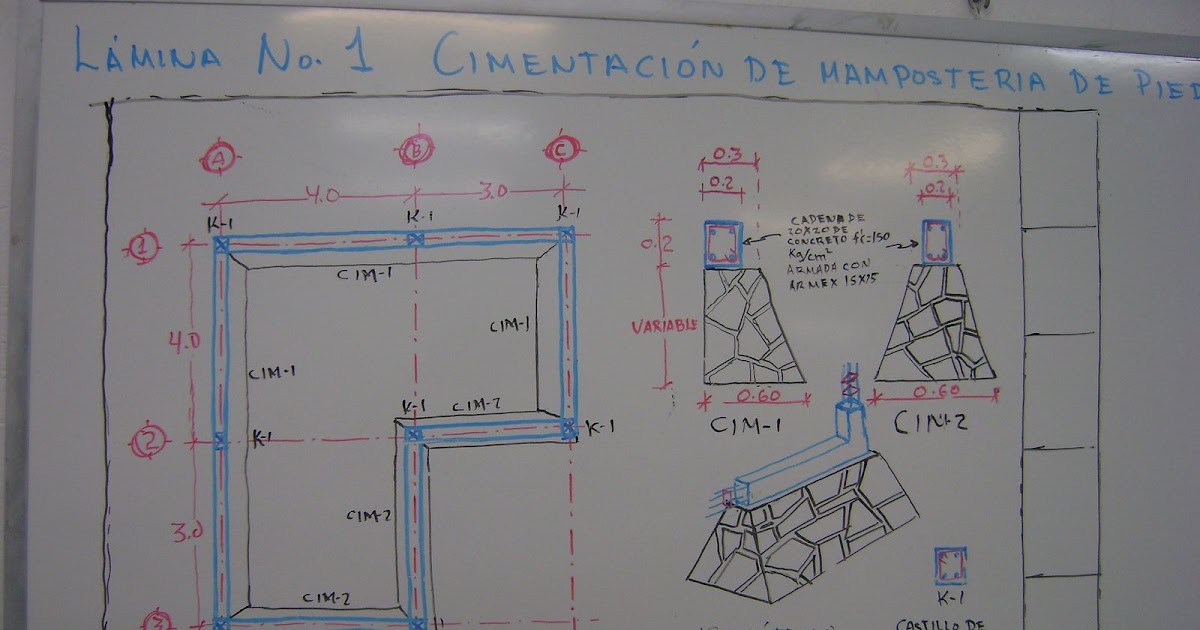 LÁMINA No. 1 CIMENTACIÓN DE MAMPOSTERIA DE PIED
A B C
4.0 3.0
K-1 K-1 K-1
1
CIM-1
CIM-1
4.0
CIM-1
K-1 CIM-2
2 K-1 K-1
CIM-2
3.0
CIM-2
3
0.3
0.2
0.2
VARIABLE
0.60
CIM-1
CADENA DE
20X20 DE
CONCRETO f'c=150
Kg/cm²
ARMADA CON
ARMEX 15X15
0.3
0.2
0.60
CIM-2
K-1
CASTILLO DE